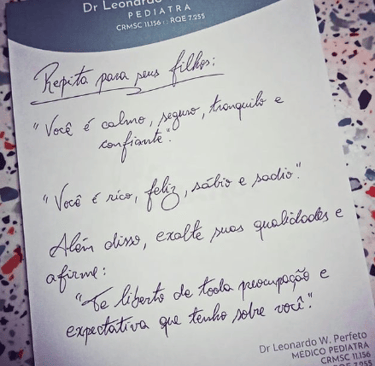 Dr Leonardo
PEDIATRA
CRMSC 11.156 · RQE 7.255
Repita para seus filhos:
"Você é calmo, seguro, tranquilo e
confiante."
"Você é rico, feliz, sábio e sadio."
Além disso, exalte suas qualidades e
afirme:
"Te liberto de toda preocupação e
expectativa que tenho sobre você".
Dr Leonardo W. Perfeto
MÉDICO PEDIATRA
CRMSC 11.156
RQE 7.255